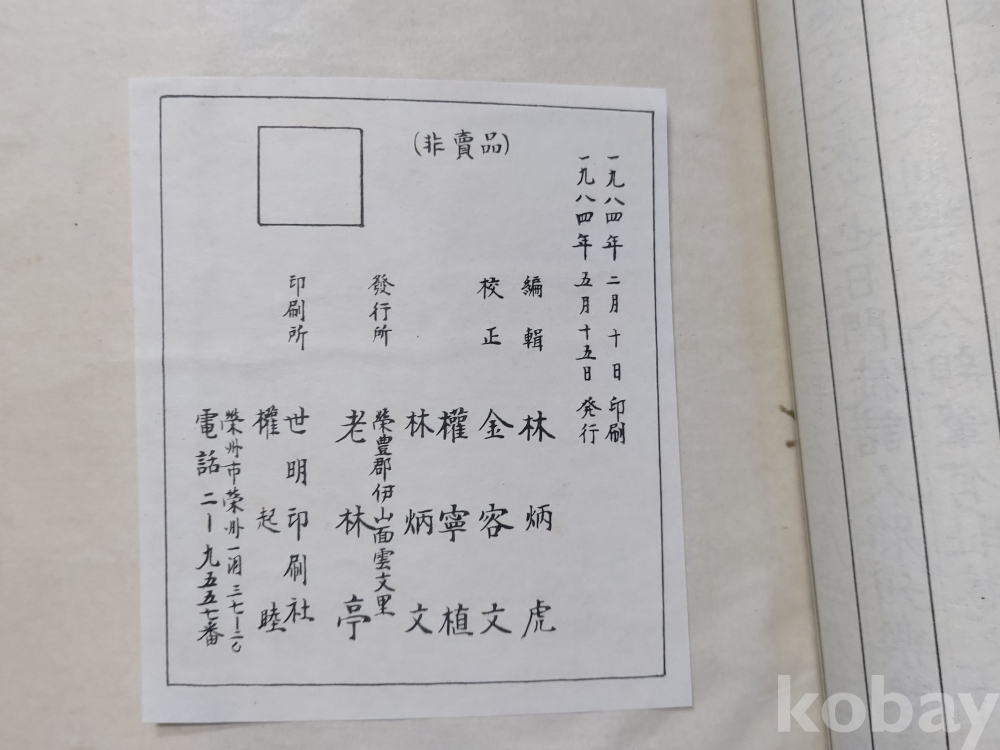 (非賣品)
一九八四年 二月十日 印刷
一九八四年 五月十五日 発行
編輯 林炳虎
校正 金容文
權寧植
林炳文
發行所 榮豊郡伊山面雲文里
老林亭
印刷所 世明印刷社
權起睦
榮州市榮州一洞三七ー二〇
電話 二ー九五五七番
kobay